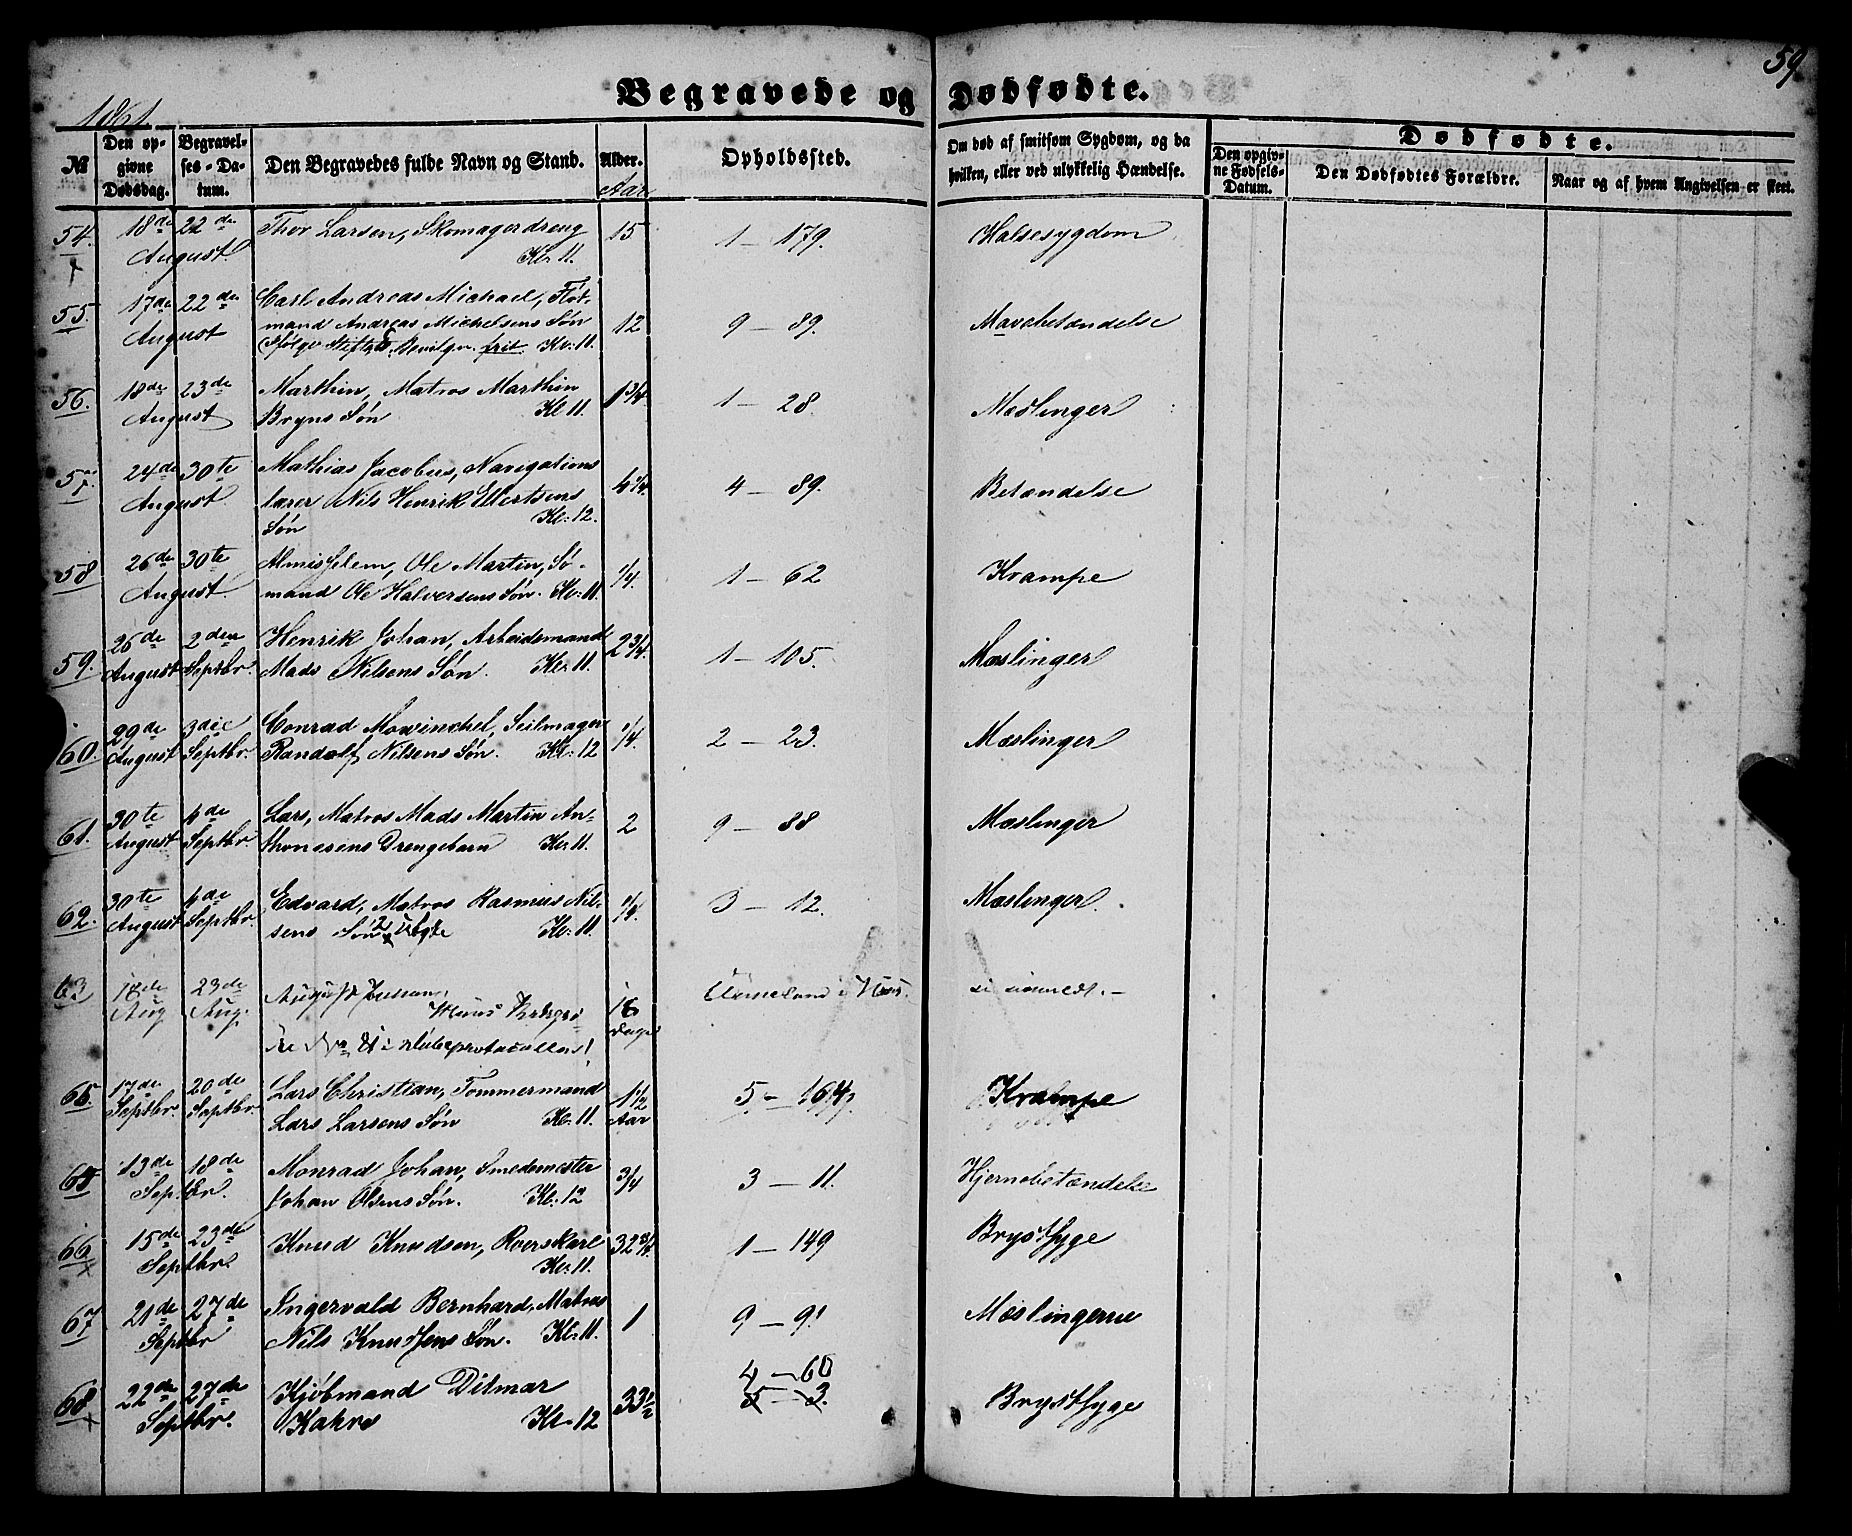 59.
Begravede og Dødfødte.
1861.
№ Den opgivne Dødsdag. Begravelses-Datum. Den Begravedes fulde Navn og Stand. Alder. Opholdssted. Om død af smitsom Sygdom, og da hvilken, eller ved ulykkelig Hændelse. Dødfødte.
Aar
Den opgivne Fødsels-Datum. Den Dødfødtes Forældre. Naar og af hvem Angivelsen er skeet.
54. 18de 22de Thor Larsen, Skomagerdreng 15 1 — 179. Halsesygdom
August Kl. 11.
55. 17de 22de Carl Andreas Michael, Flot-
mand Andreas Michelsens Søn 12 9 — 89. Mavebetændelse
August frit. Kl. 11.
56. 18de 23de Marthin, Matros Marthin 1 3/4 1 — 28. Mæslinger
August Bryns Søn Kl. 11.
57. 24de 30te Mathias Jacobus, Navigations
August lærer Nils Henrik Ellertsens 4 1/4 4 — 89. Betændelse
Søn Kl: 12.
58 26de 30te Ole Martin, Sø- 1/4. 1 — 62 Krampe
August. mand Ole Halversens Søn. Kl. 11.
59. 26de 2den Henrik Johan, Arbeidsmand 2 3/4. 1 — 105. Mæslinger
August Septbr. Mads Nilsens Søn. Kl. 11.
60. 29de 3die Conrad Mowinckel, Seilmager 1/4. 2 — 23. Mæslinger
August Septbr. Randolf Nilsens Søn. Kl. 12
61. 30te 4de Lars, Matros Mads Martin An- 2 9 — 88 Mæslinger
August Septbr. thonesens Drengebarn Kl. 11.
62. 30te 4de Edvard, Matros Rasmus Nil- 3 — 12. Mæslinger.
August Septbr. sens Søn Kl. 11.
63 18de 23de August 16
Aug Aug. Dage
65. 17de 20de Lars Christian, Tømmermand 1 1/2 5 — 164. Krampe
Septbr. Septbr. Lars Larsens Søn Kl. 11. Aar
65 13de 18de Monrad Johan, Smedemester 3/4 3 — 11. Hjernebetændelse
Septbr. Johan Olsens Søn. Kl. 12
66 15de 23de Knud Knudsen, Roerskarl 32 3/4. 1 — 149 Brystsyge
Septbr. Kl. 11.
67 21de 27de Ingervald Bernhard, Matros 1 9 — 91 Mæslingerne
Septbr Nils Knudsens Søn. Kl. 11.
4 — 60
68 22de 27de Kjøbmand Ditmar 33 1/2 5 — 3. Brystsyge
Septbr. Kahrs Kl. 12